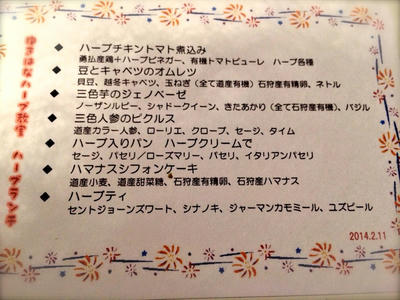 ゆきはなハーブ教室 ハーブランチ
◆ ハーブチキントマト煮込み
勇払産鶏+ハーブビネガー、有機トマトピューレ ハーブ各種
◆ 豆とキャベツのオムレツ
貝豆、越冬キャベツ、玉ねぎ(全て道産有機)石狩産有精卵、ネトル
◆ 三色芋のジェノベーゼ
ノーザンルビー、シャドークイーン、きたあかり(全て石狩産有機)、バジル
◆ 三色人参のピクルス
道産カラー人参、ローリエ、クローブ、セージ、タイム
◆ ハーブ入りパン ハーブクリームで
セージ、パセリ/ローズマリー、バジル、イタリアンパセリ
◆ ハマナスシフォンケーキ
道産小麦、道産甜菜糖、石狩産有精卵、石狩産ハマナス
◆ ハーブティ
セントジョーンズワート、シナノキ、ジャーマンカモミール、ユズピール
2014.2.11